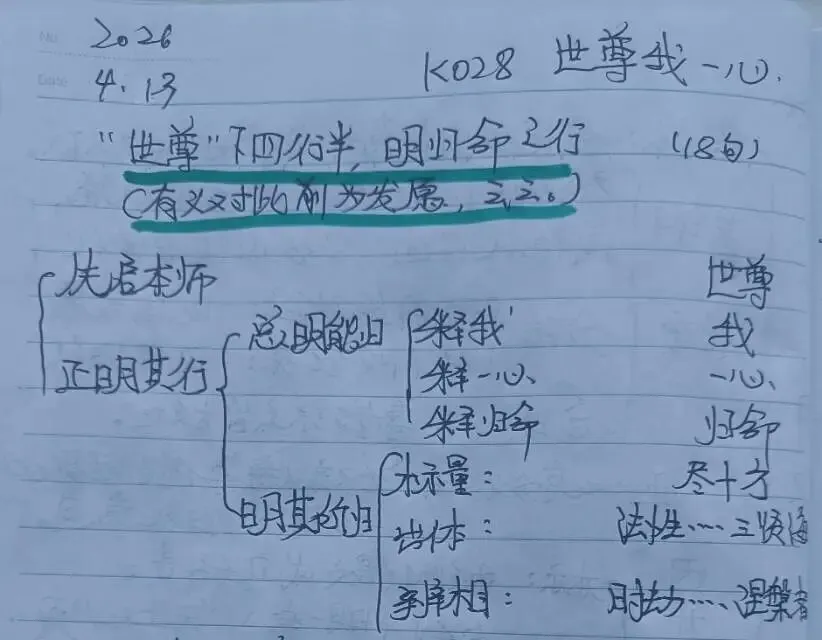 No.
2026
Date
4.13
K028 世尊我一心.
"世尊"下四行半,明归命之行 (18句)
(有义对此前为发愿,云云。)
先启本师 世尊
正明其行 总明能归 释我 我
释一心 一心
释归命 归命
明其所归 标示量: 尽十方
出体: 法性……三贤海
彰相: 时劫……涅槃者